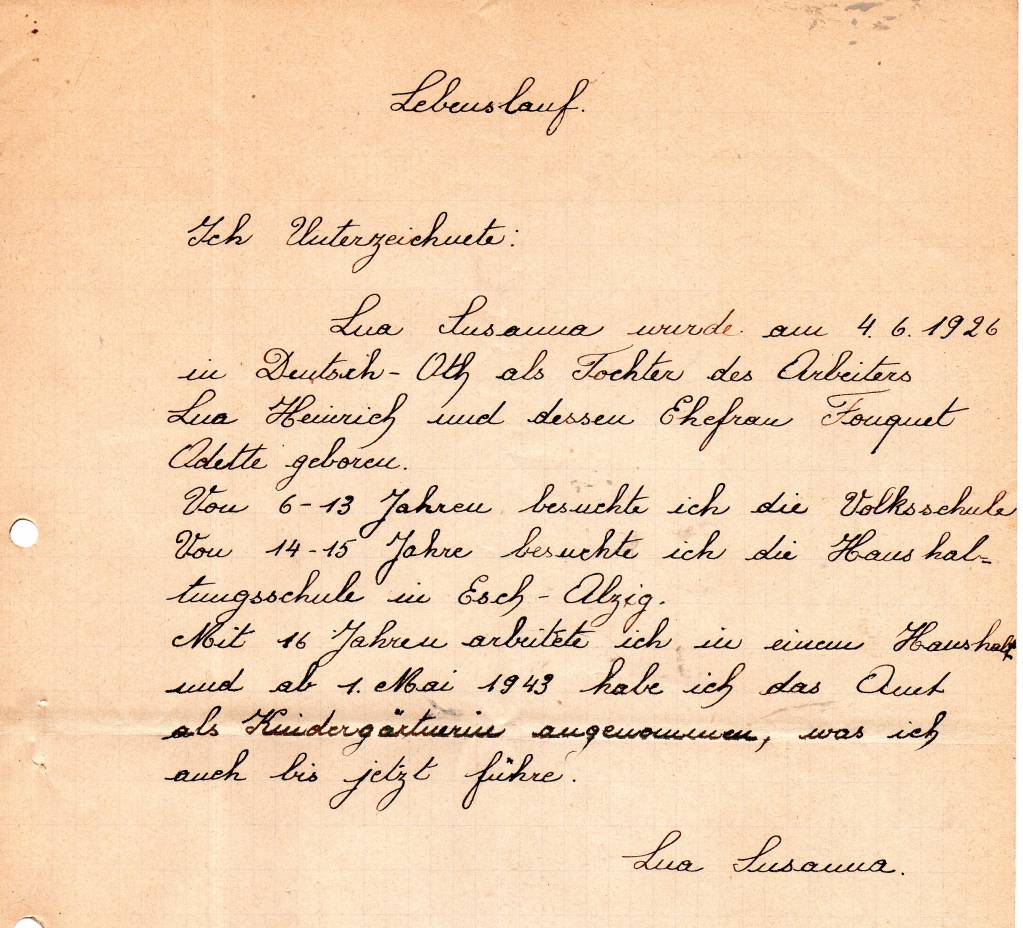 Lebenslauf.
Ich Unterzeichnete:
Lua Susanna wurde am 4. 6. 1926
in Deutsch-Oth als Tochter des Arbeiters
Lua Heinrich und dessen Ehefrau Fouquet
Odette geboren.
Von 6-13 Jahren besuchte ich die Volksschule
Von 14-15 Jahre besuchte ich die Haushal=
tungsschule in Esch-Alzig.
Mit 16 Jahren arbeitete ich in einem Haushalt
und ab 1. Mai 1943 habe ich das Amt
als Kindergärtnerin angenommen, was ich
auch bis jetzt führe.
Lua Susanna.